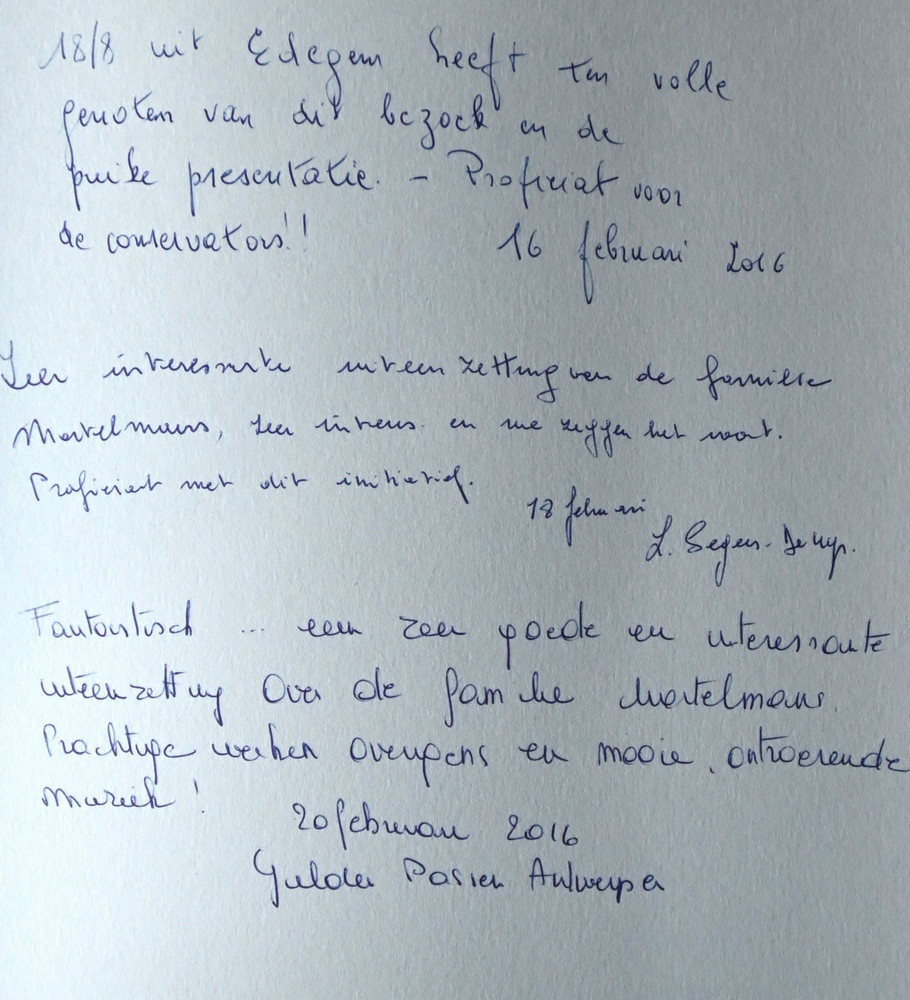 18/8 uit Edegem heeft ten volle
genoten van dit bezoek en de
puike presentatie. - Proficiat voor
de conservators!!
16 februari 2016
Zeer interessante uiteenzetting van de familie
Mortelmans, zeer intens en we zeggen het voort.
Proficiat met dit initiatief.
18 februari
L. Segers-
Fantastisch ... een zeer goede en interessante
uiteenzetting over de familie Mortelmans.
Prachtige werken overigens en mooie, ontroerende
muziek!
20 februari 2016
Gulden Passer Antwerpen